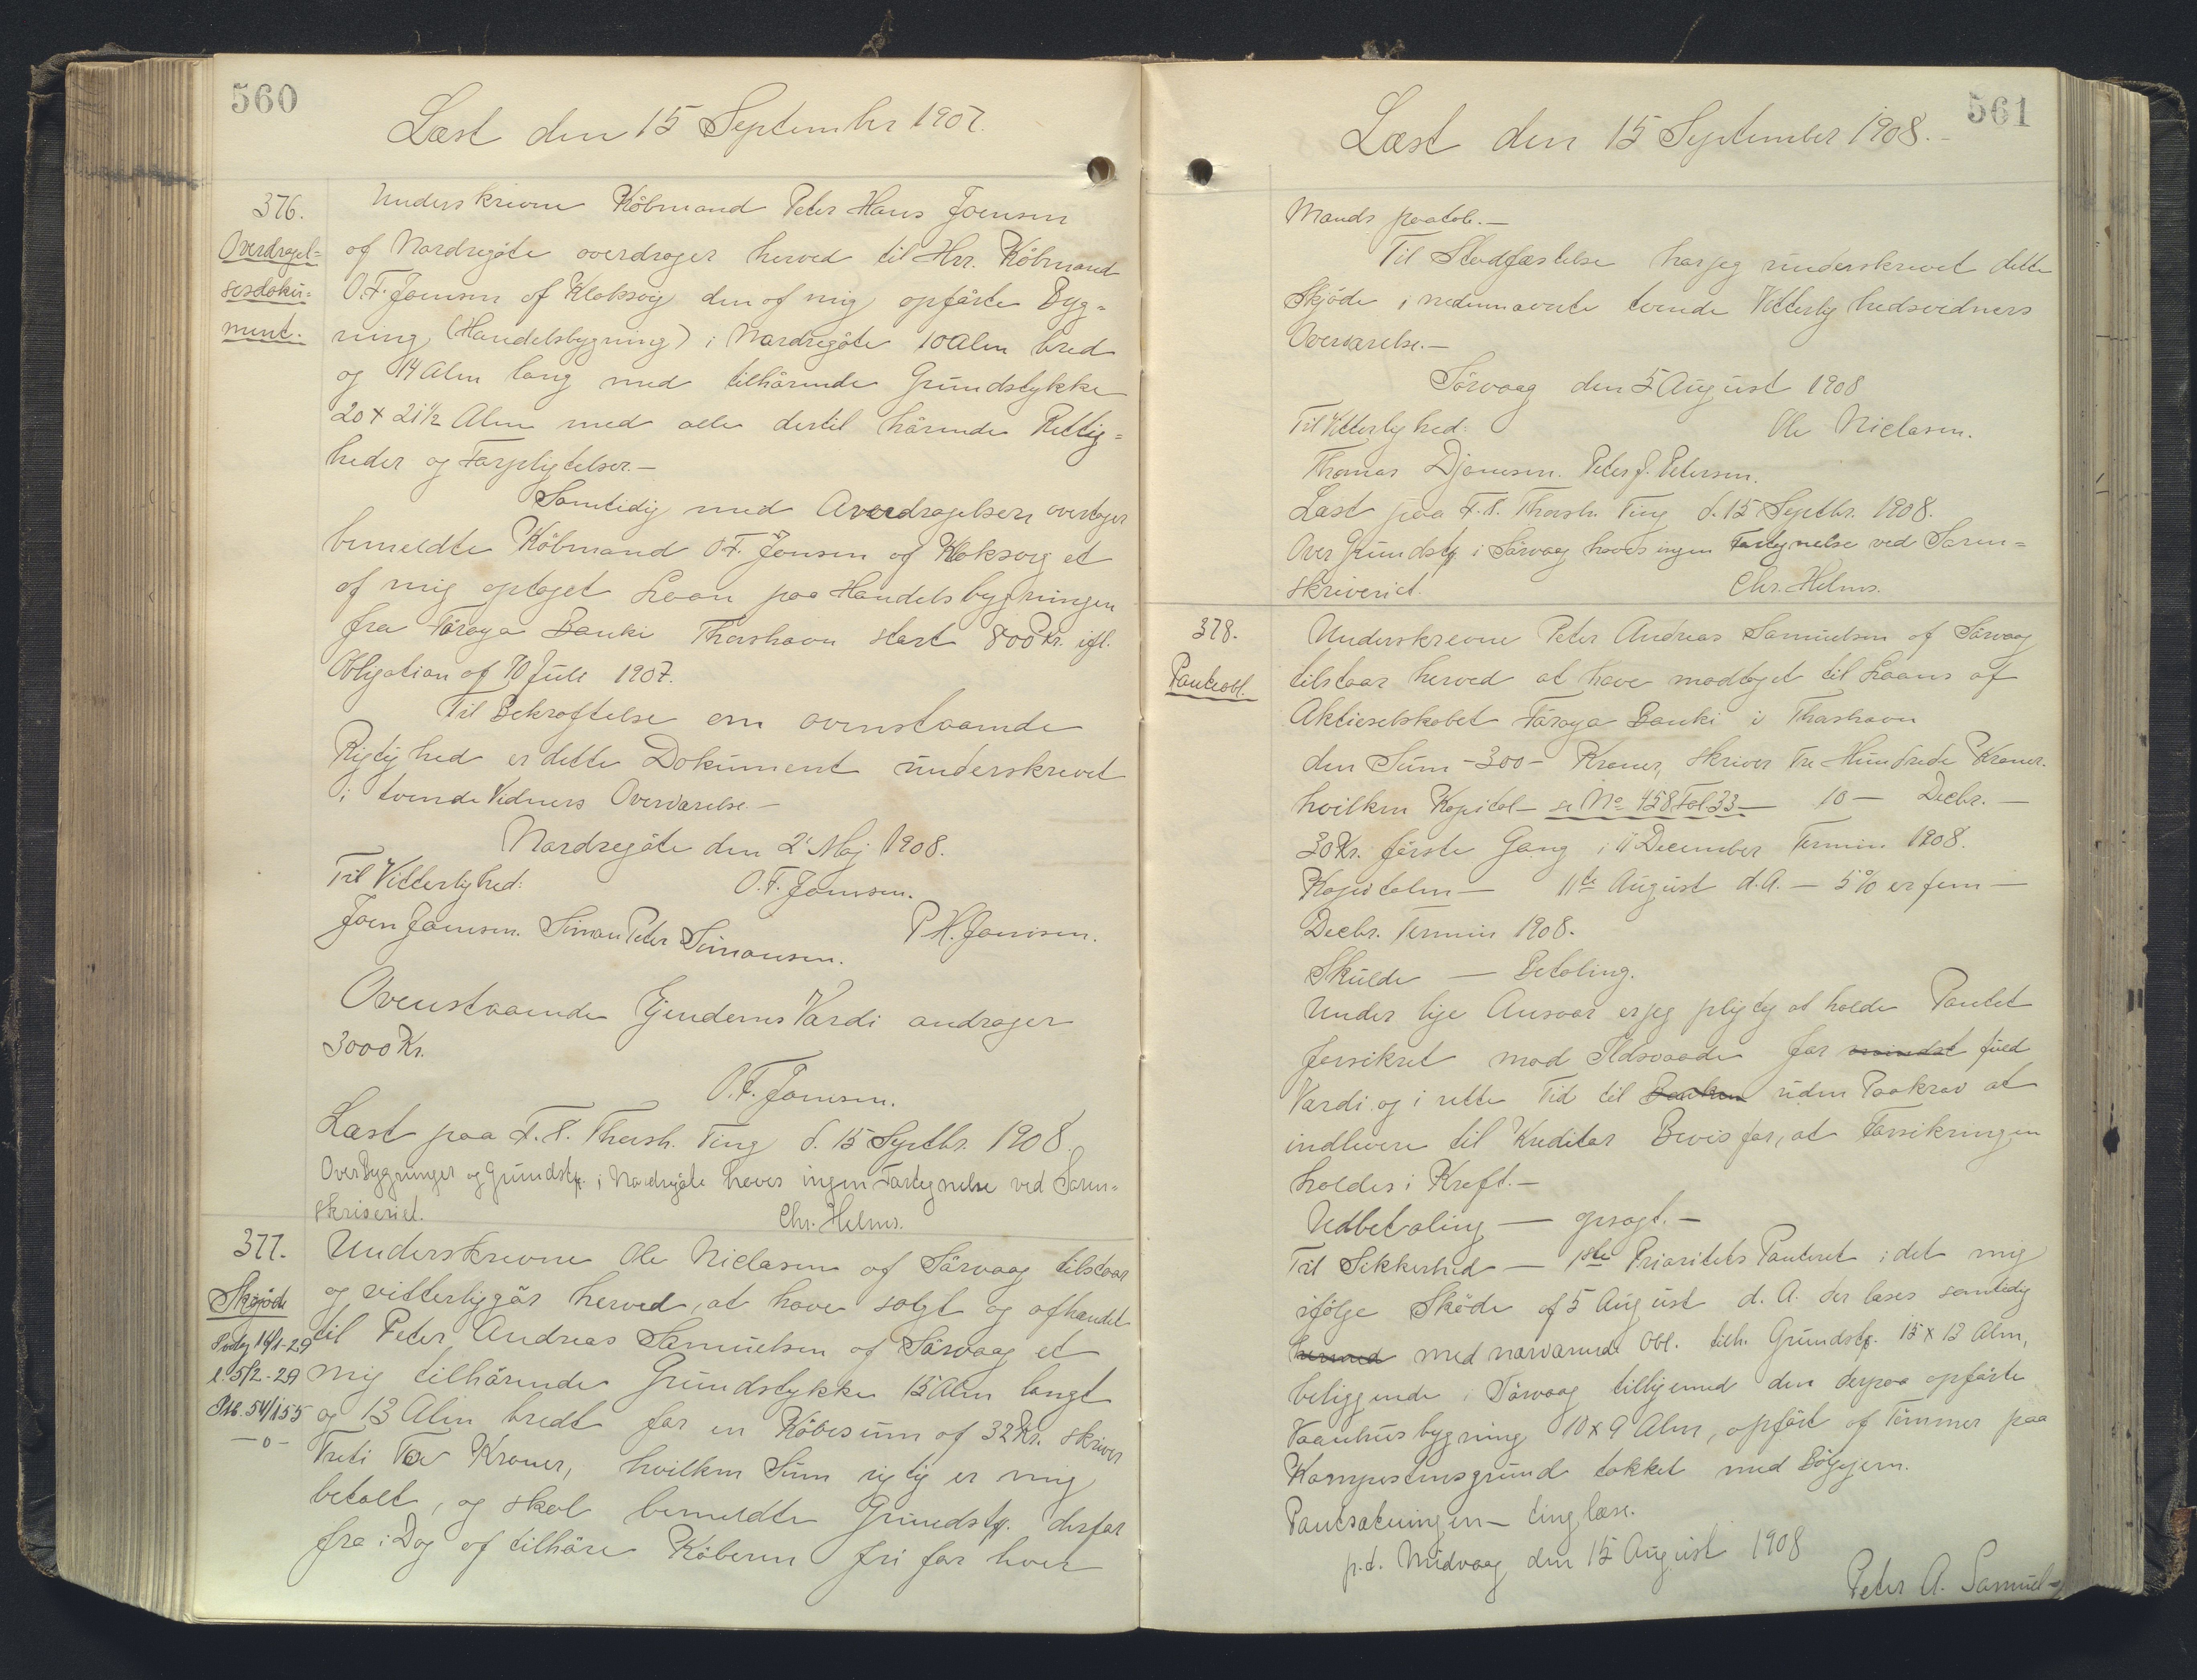 560
Læst den 15 September 1907.
376.
Overdragel=
sesdoku=
ment.
Underskrevne Köbmand Peter Hans Joensen
af Nordregöte overdrager herved til Hrr. Köbmand
O. F. Joensen af Klaksvig den af mig opförte Byg=
ning (Handelsbygning) i Nordregöte 10 Alen bred
og 14 Alen lang med tilhörende Grundstykke
20 x 21½ Alen med alle dertil hörende Rettig=
heder og Forpligtelser.—
Samtidig med Overdragelsen overtager
bemeldte Köbmand O. F. Jönsen af Klaksvig et
af mig optaget Laan paa Handelsbygningen
fra Föroya Banki Thorshavn stort 800 Kr. ifl.
Obligation af 10 Juli 1907.
Til Bekræftelse om ovenstaaende
Rigtighed er dette Dokument underskrevet
i tvende Vidners Overværelse.—
Nordregöte den 2 Maj 1908.
Til Vitterlighed:
O. F. Joensen.
Joen Joensen. Simon Peter Simonsen.
P. H. Joensen.
Ovenstaaende Ejendoms Værdi andrager
3000 Kr.
O. F. Joensen.
Læst paa F. T. Thorsh. Ting d. 15 Septbr. 1908.
Over Bygninger og Grundstk. i Nordregöte haves ingen Fortegnelse ved Soren=
skriveriet.
Chr. Helms.
377.
Skjöde
Modtg 14/1-29
l. 5/2.-29
Ptb. 54/155
—o—
Underskrevne Ole Niclasen af Sörvaag tilstaar
og vitterliggör herved, at have solgt og afhændet
til Peter Andreas Samuelsen af Sörvaag et
mig tilhörende Grundstykke 15 Alen langt
og 13 Alen bredt for en Köbesum af 32 Kr. skriver
Treti To Kroner, hvilken Sum rigtig er mig
betalt, og skal bemeldte Grundstk. derfor
fra i Dag af tilhöre Köberen fri for hver
561
Læst den 15 September 1908.—
Mands paatale.—
Til Stadfæstelse har jeg underskrevet dette
Skjöde i nedennævnte tvende Vitterlighedsvidners
Overværelse.—
Sörvaag den 5 August 1908
Til Vitterlighed:
Ole Niclasen.
Thomas Djonesen. Peter J. Petersen.
Læst paa F. T. Thorsh. Ting d. 15 Septbr. 1908.
Over Grundstk i Sörvaag haves ingen Fortegnelse ved Soren=
skriveriet.
Chr. Helms.
378.
Panteobl.
Underskrevne Peter Andreas Samuelsen af Sörvaag
tilstaar herved at have modtaget til Laans af
Aktieselskabet Föroya Banki i Thorshavn
den Sum —300— Kroner, skriver Tre Hundrede Kroner.
hvilken Kapital — se No 458 Fol 33 — 10 — Decbr. —
30 Kr. förste Gang i 11 December Termin 1908.
Kapitalen — 11te August d. A. — 5 % er fem —
Decbr. Termin 1908.
Skulde — Betaling.
Under lige Ansvar er jeg pligtig at holde Pantet
forsikret mod Ildsvaade for mindst fuld
Værdi og i rette Tid til Banken uden Paakrav at
indlevere til Kreditor Bevis for, at Forsikringen
holdes i Kraft.—
Udbetaling — opsagt.—
Til Sikkerhed — 1ste Prioritets Panteret i det mig
ifölge Sköde af 5 August d. A. der læses samtidig
hermed med nærværende Obl. tilh. Grundstk. 15 x 13 Alen,
beliggende i Sörvaag tilligemed den derpaa opförte
Vaanhusbygning 10 x 9 Alen, opfört af Tömmer paa
Kampestensgrund takket med Bölgejern.
Pantsætningen — tinglæse.
p.t. Midvaag den 15 August 1908
Peter A. Samuel-